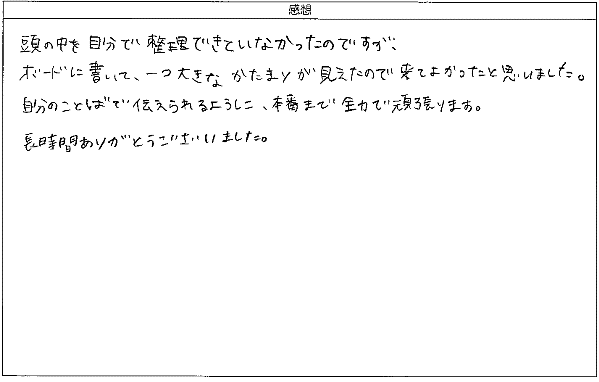 感想
頭の中を自分で整理できていなかったのですが、
ボードに書いて、一つ大きなかたまりが見えたので来てよかったと思いました。
自分のことばで伝えられるように、本番まで全力で頑張ります。
長時間ありがとうございました。